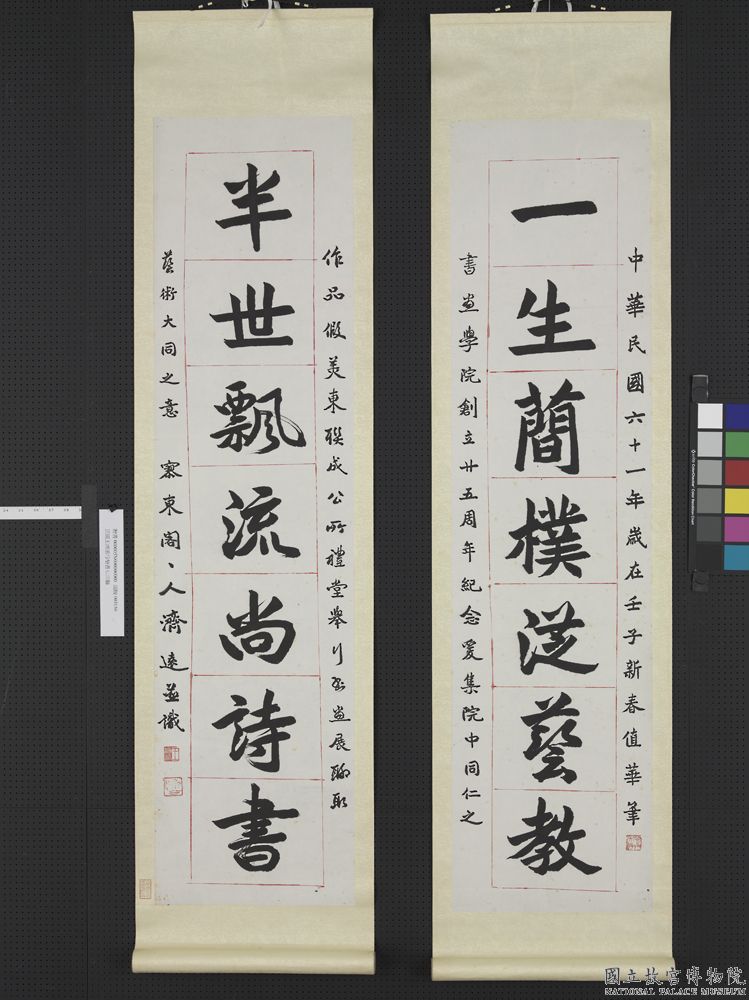 中華民國六十一年歲在壬子新春值華筆
一生蕳樸從藝教
書畫學院創立廿五周年紀念爰集院中同仁之
作品假美東聯成公所禮堂舉行書畫展聊取
半世飄流尚詩書
藝術大同之意 寮東閣、人濟遠並識
國立故宮博物院
NATIONAL PALACE MUSEUM